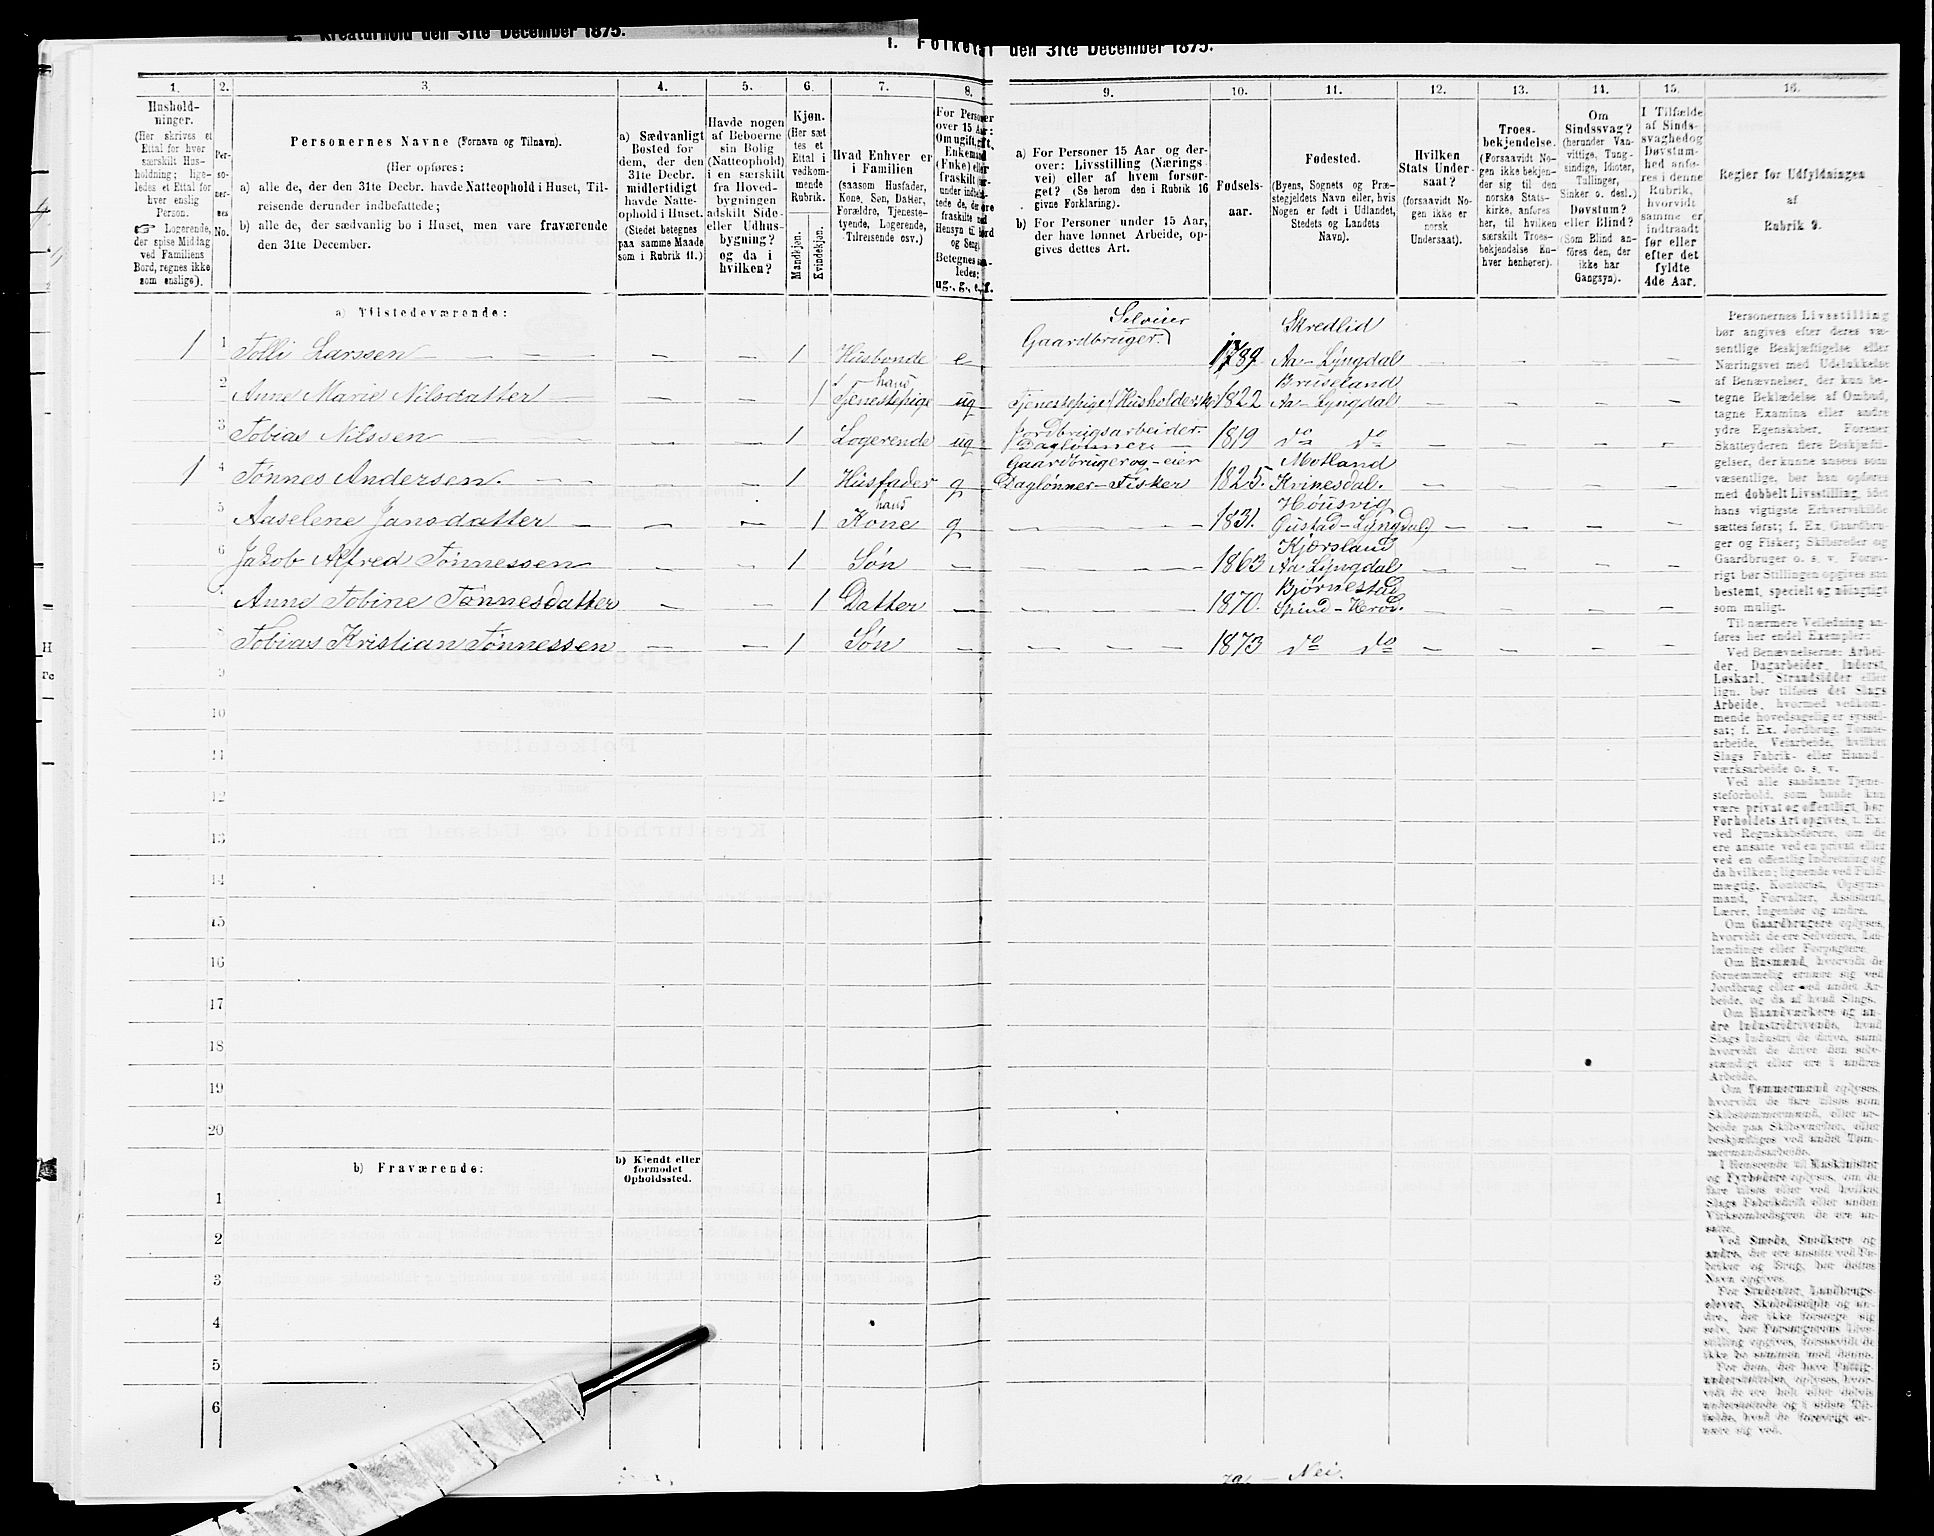 2. Kreaturhold den 31te December 1875.
1. Folketal den 31te December 1875.
1.
Hushold-
ninger.
(Her skrives et
Ettal for hver
særskilt Hus-
holdning; lige-
ledes et Ettal for
hver enslig
Person.
☞ Logerende,
der spise Middag
ved Familiens
Bord, regnes ikke
som enslige).
2.
Per-
so-
ner-
nes
No.
3.
Personernes Navne (Fornavn og Tilnavn).
(Her opføres:
a) alle de, der den 31te Decbr. havde Natteophold i Huset, Til-
reisende derunder indbefattede;
b) alle de, der sædvanlig bo i Huset, men vare fraværende
den 31te December.
4.
a) Sædvanligt
Bosted for
dem, der den
31te Decbr.
midlertidigt
havde Natte-
ophold i Huset.
(Stedet betegnes
paa samme Maade
som i Rubrik 11.)
5.
Havde nogen
af Beboerne
sin Bolig
(Natteophold)
i en særskilt
fra Hoved-
bygningen
adskilt Side-
eller Udhus-
bygning?
og da i
hvilken?
6.
Kjøn.
(Her sæt
tes et
Ettal i
vedkom-
mende
Rubrik.
Mandkjøn.
Kvindekjøn.
7.
Hvad Enhver er
i Familien
(saasom Husfader,
Kone, Søn, Datter,
Forældre, Tjeneste-
tyende, Logerende,
Tilreisende osv.)
8.
For Personer
over 15 Aar:
Om ugift, gift,
Enkemand
(Enke) eller
fraskilt
9.
a) For Personer 15 Aar og der-
over: Livsstilling (Nærings
vei) eller af hvem forsør-
get? (Se herom den i Rubrik 16
givne Forklaring).
b) For Personer under 15 Aar,
der have lønnet Arbeide, op-
gives dettes Art.
10.
Fødsels-
aar.
11.
Fødested.
(Byens, Sognets og Præ-
stegjeldets Navn, eller, hvis
Nogen er født i Udlandet,
Stedets og Landets
Navn).
12.
Hvilken
Stats Under-
saat?
(forsaavidt No-
gen ikke er
norsk
Undersaat).
13.
Troes-
bekjendelse.
(Forsaavidt No-
gen ikke bekjen-
der sig til den
norske Stats-
kirke, anføres
her, til hvilken
særskilt Troes-
bekjendelse En-
hver henhører).
14.
Om
Sindssvag?
(herunder Van-
vittige, Tung-
sindige, Idioter,
Tullinger,
Sinker o. desl.)
Døvstum?
eller Blind?
(Som Blind an-
føres den, der
ikke har
Gangsyn).
15.
I Tilfælde
af Sinds-
svaghed og
Døvstum-
hed anfø-
res i denne
Rubrik,
hvorvidt
samme er
indtraadt
før eller
efter det
fyldte
4de Aar.
16.
Regler for Udfyldningen
af
Rubrik 9.
a) Tilstedeværende:
1 1 Tolli Larssen 1 Husbonde e Gaardbruger Selveier 1789 Skredlid Aa-Lyngdal
2 Anne Marie Nilsdatter 1 hans Tjenestepige ug Tjenestepige (Husholderske 1822 Bruseland Aa-Lyngdal
3 Tobias Nilssen 1 Logerende ug Jordbrugsarbeider Daglønner 1819 do do
1 4 Tønnes Andersen. 1 Husfader g Gaardbruger og-eier Daglønner-Fisker 1825. Motland Kvinesdal.
5 Aaselene Jansdatter 1 hans Kone g 1831. Høusvig Qustad-Lyngdal
6 Jakob Alfred Tønnessen 1 Søn 1863 Kjørsland Aa-Lyngdal
Anne Tobine Tønnesdatter 1 Datter 1870. Bjørnestad Spind-Herød.
Tobias Kristian Tønnessen 1 Søn 1873 do do
9
10
11
12
13
14
15
16
17
18
19
20
b) Fraværende:
b) Kjendt eller
formodet
Opholdssted.
1
2
3
4
5
6
Personernes Livsstilling
bør angives efter deres væ-
sentlige Beskjæftigelse eller
Næringsvei med Udelukkelse
af Benævnelser, der kun be-
tegne Beklædelse af Ombud,
tagne Examina eller andre
ydre Egenskaber. Forener
Skatteyderen flere Beskjæfti-
gelser, der kunne ansees som
væsentlige, bør han opføres
med dobbelt Livsstilling, idet
hans vigtigste Erhvervskilde
sættes først; f. Ex. Gaardbru-
ger og Fisker; Skibsreder og
Gaardbruger o. s. v. Forøv-
rigt bør Stillingen opgives saa
bestemt, specielt og nøiagtigt
som muligt.
Til nærmere Veiledning an-
føres her endel Exempler:
Ved Benævnelserne: Arbei-
der, Dagarbeider, Inderst,
Løskarl, Strandsidder eller
lign. bør tilføies det Slags
Arbeide, hvormed vedkom-
mende hovedsagelig er syssel-
sat; f. Ex. Jordbrug, Tomte-
arbeide, Veiarbeide, hvilket
Slags Fabrik- eller Haand-
værksarbeide o. s. v.
Ved alle saadanne Tjene-
steforhold, som baade kan
være privat og offentligt, bør
Forholdets Art opgives, t. Ex.
ved Regnskabsførere, om de
ere ansatte ved en privat eller
ved en offentlig Indretning og
da hvilken; lignende ved Fuld-
mægtig, Kontorist, Opsyns-
mand, Forvalter, Assistent,
Lærer, Ingeniør og andre.
Om Gaardbrugere oplyses,
hvorvidt de ere Selveiere, Lei-
lændinge eller Forpagtere.
Om Husmænd, hvorvidt de
fornemmelig ernære sig ved
Jordbrug eller ved andet Ar-
beide, og da af hvad Slags.
Om Haandværkere og an-
dre Industridrivende, hvad
Slags Industri de drive, samt
hvorvidt de drive den selv-
stændigt eller ere i andres
Arbeide.
Om Tømmermænd oplyses,
hvorvidt de fare tilsøs som
Skibstømmermænd, eller ar-
beide paa Skibsværfter, eller
beskjæftiges ved andet Tøm-
mermandsarbeide.
I Henseende til Maskinister
og Fyrbødere oplyses, om de
fare tilsøs eller ved hvilket
Slags Fabrikdrift eller anden
Virksomhedsgren de ere an-
satte.
Ved Smede, Snedkere og
andre, der ere ansatte ved Fa-
briker og Brug, bør dettes
Navn opgives.
For Studenter, Landbrugs-
elever, Skoledisciple og an-
dre, der ikke forsørge sig
selv, bør Forsørgerens Livs-
stilling opgives, forsaavidt de
ikke bo sammen med denne.
For dem, der have Fattig-
understøttelse, oplyses, hvor-
vidt de ere helt eller delvis
understøttede og i sidste Til-
fælde, hvad de forøvrigt er-
nære sig ved.
Nei.